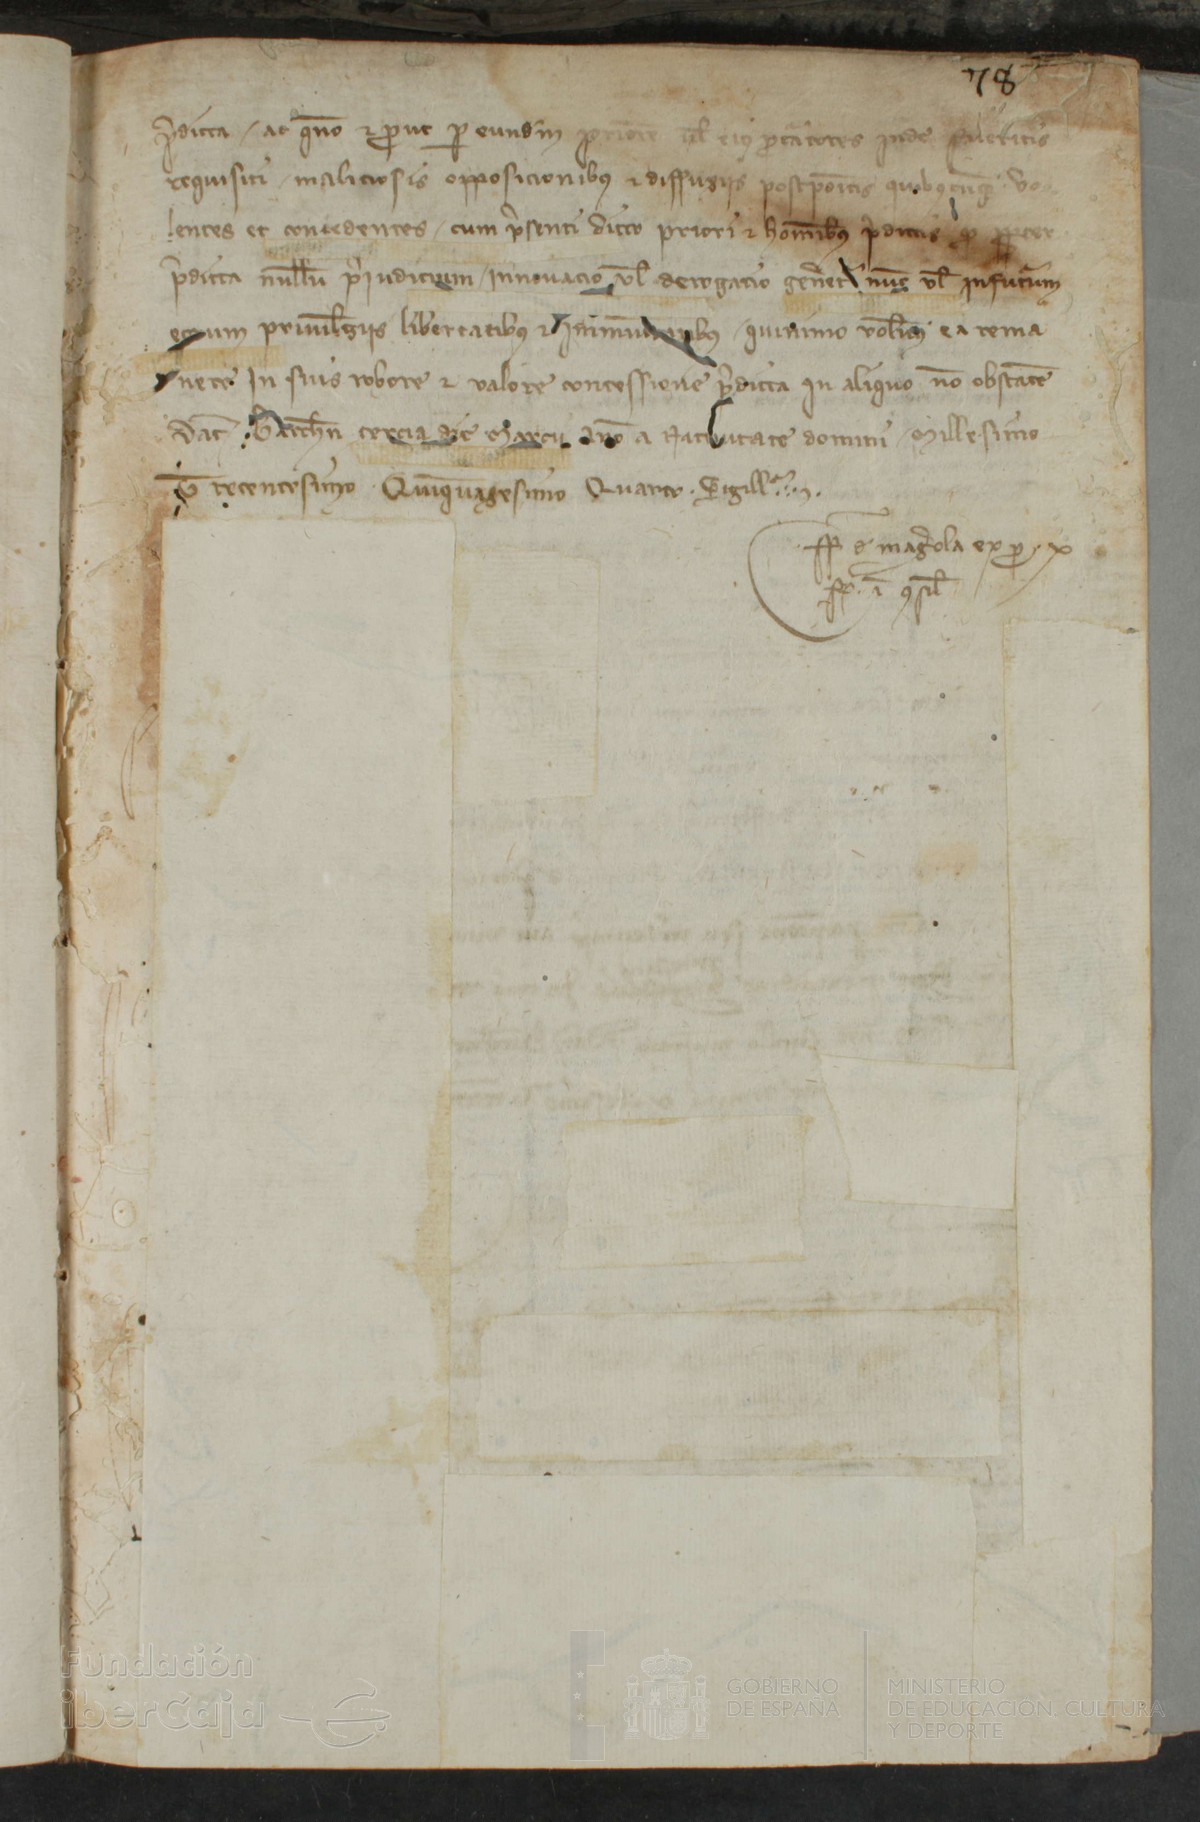 78
p̄dicta / ac quō & prout per eundm̄ priorē ul̄ eiꝰ p̄curatores inde fueritis
requisiti / maliciosis opposicionibꝰ & diffugiis postpōitis quibꝰcumq̄ · vo
lentes et concedentes / cum p̄senti dicto priori & homībꝰ p̄dictis ꝑ propter
p̄dicta nullū p̄iudicium / innovacio vl̄ derogatio gen̄et̄ nūc vl̄ infutūm
eorum privil̄egiis libertatibꝰ & īmunitatibꝰ / quinimo volumꝰ ea rema
nere In suis robore & valore concessione p̄dicta in aliquo nō obstāte
Dat̄ · Barchn̄ tercia die Marcii Anō a Nativitate domini Millesimo
Trecentesimo · Quīquagesimo Quarto · Sigill
de magrola ex p̄
ī ꝯsil̄
Fundación
iberCaja
GOBIERNO
DE ESPAÑA
MINISTERIO
DE EDUCACIÓN, CULTURA
Y DEPORTE